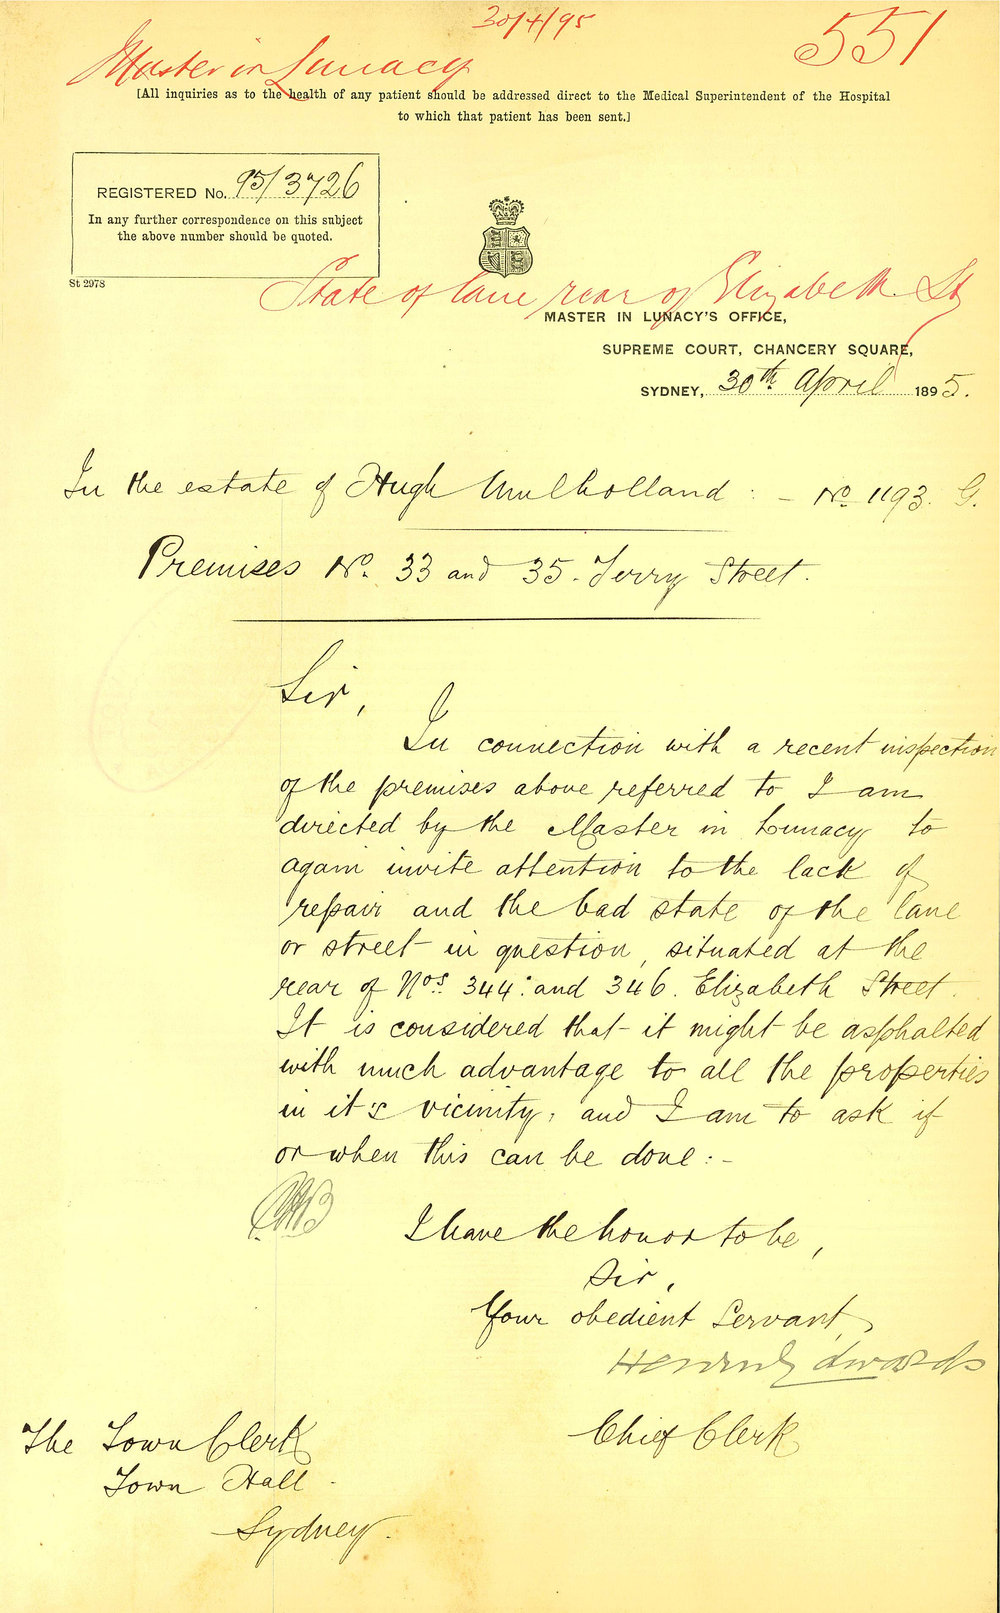 30/4/95
551
Master in Lunacy
[All inquiries as to the health of any patient should be addressed direct to the Medical Superintendent of the Hospital
to which that patient has been sent.]
REGISTERED No. 95/3726
In any further correspondence on this subject
the above number should be quoted.
St 2978
State of lane rear of Elizabeth St
MASTER IN LUNACY'S OFFICE,
SUPREME COURT, CHANCERY SQUARE,
SYDNEY, 30th April 1895.
In the estate of Hugh Mulholland : - No. 1193. G.
Premises No. 33 and 35. Terry Street.
Sir,
In connection with a recent inspection
of the premises above referred to I am
directed by the Master in Lunacy to
again invite attention to the lack of
repair and the bad state of the lane
or street in question, situated at the
rear of Nos. 344. and 346. Elizabeth Street.
It is considered that it might be asphalted
with much advantage to all the properties
in it's vicinity, and I am to ask if
or when this can be done:-
I have the honor to be,
Sir,
Your obedient Servant,
Edwards
Chief Clerk
The Town Clerk
Town Hall
Sydney.